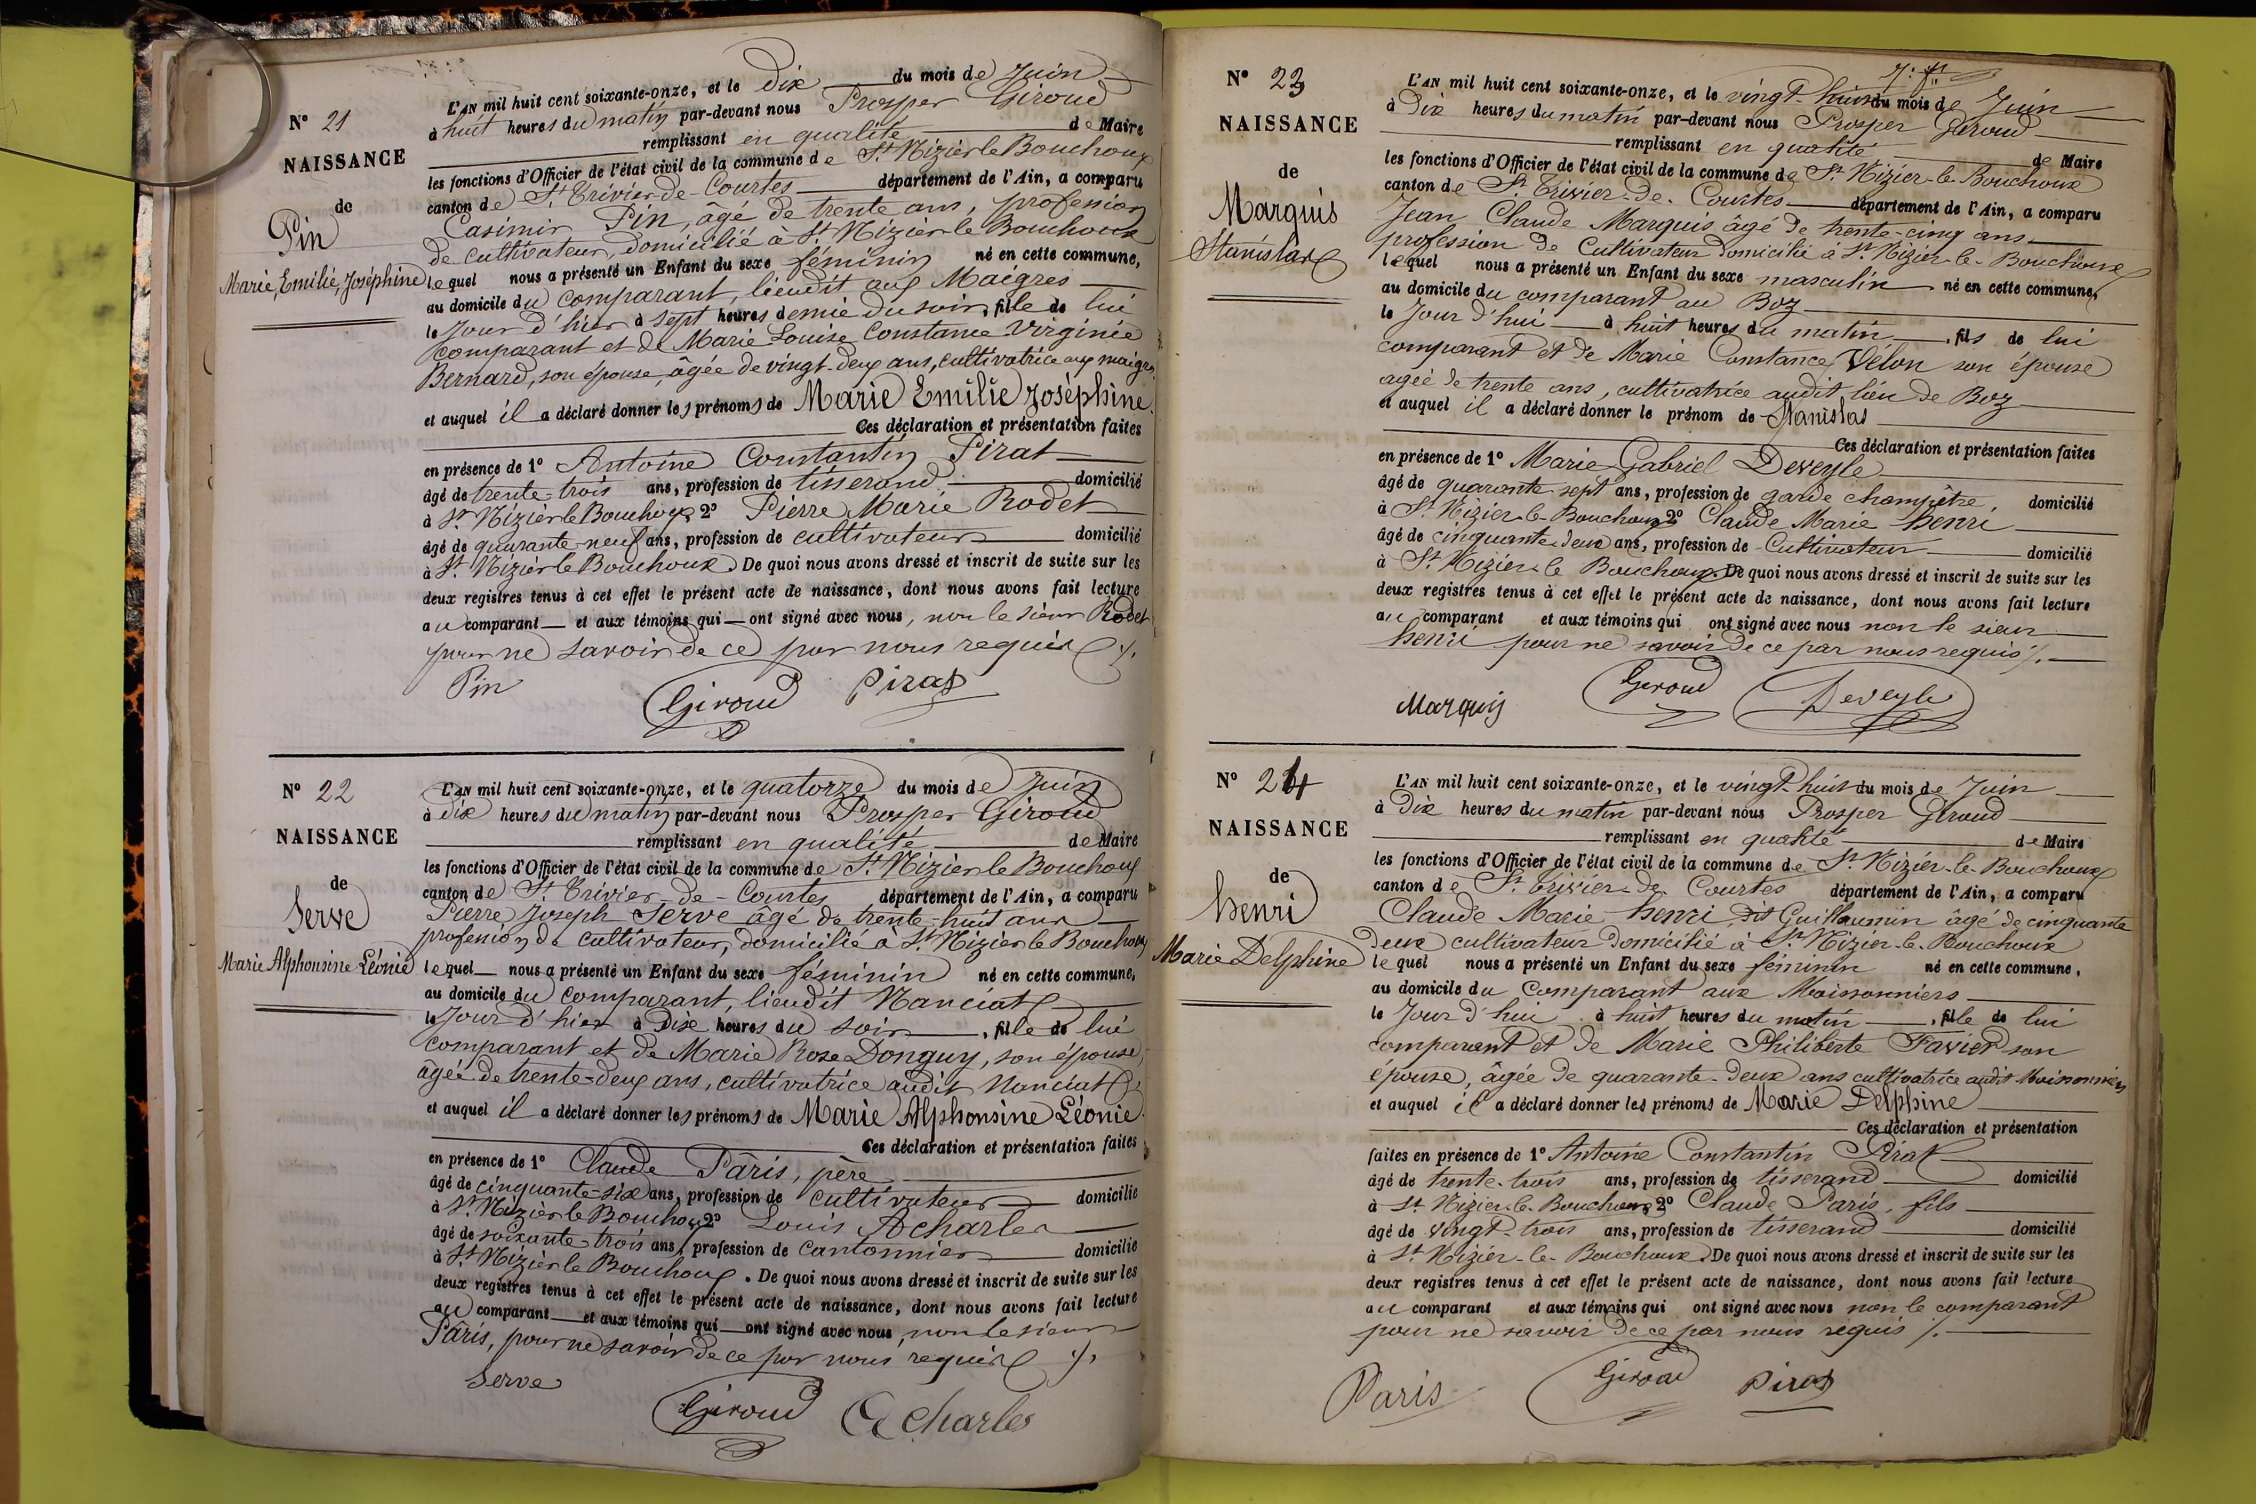 N° 21
NAISSANCE
de
Pin
Marie, Emilie, Joséphine
L'AN mil huit cent soixante-onze, et le Dix du mois de Juin
à huit heures du matin par-devant nous Prosper Giroud
remplissant en qualité de Maire
les fonctions d'Officier de l'état civil de la commune de St Nizier le Bouchoux
canton de St Trivier-de-Courtes département de l'Ain, a comparu
Casimir Pin, âgé de trente ans, profession
de cultivateur, domicilié à St Nizier le Bouchoux
lequel nous a présenté un Enfant du sexe féminin né en cette commune,
au domicile du comparant, lieudit aux Maigres
le Jour d'hier à sept heures demie du soir, fille de lui
comparant et de Marie Louise Constance Virginie
Bernard, son épouse, âgée de vingt-deux ans, cultivatrice aux maigres
et auquel il a déclaré donner les prénoms de Marie Emilie Joséphine.
Ces déclaration et présentation faites
en présence de 1° Antoine Constantin Pirat
âgé de trente-trois ans, profession de tisserand domicilié
à St Nizier le Bouchoux 2° Pierre Marie Rodet
âgé de quarante-neuf ans, profession de cultivateur domicilié
à St Nizier le Bouchoux. De quoi nous avons dressé et inscrit de suite sur les
deux registres tenus à cet effet le présent acte de naissance, dont nous avons fait lecture
au comparant et aux témoins qui ont signé avec nous, non le sieur Rodet
pour ne savoir de ce par nous requis ./.
Pin Giroud Pirat
N° 22
NAISSANCE
de
Serve
Marie Alphonsine Léonie
L'AN mil huit cent soixante-onze, et le quatorze du mois de Juin
à dix heures du matin par-devant nous Prosper Giroud
remplissant en qualité de Maire
les fonctions d'Officier de l'état civil de la commune de St Nizier le Bouchoux
canton de St Trivier-de-Courtes département de l'Ain, a comparu
Pierre Joseph Serve âgé de trente-huit ans
profession de cultivateur, domicilié à St Nizier le Bouchoux
lequel nous a présenté un Enfant du sexe féminin né en cette commune,
au domicile du comparant, lieudit Nanciat
le Jour d'hier à Dix heures du soir, fille de lui
comparant et de Marie Rose Donguy, son épouse,
âgée de trente-deux ans, cultivatrice audit Nanciat
et auquel il a déclaré donner les prénoms de Marie Alphonsine Léonie.
Ces déclaration et présentation faites
en présence de 1° Claude Pâris, père
âgé de cinquante-six ans, profession de cultivateur domicilié
à St Nizier le Bouchoux 2° Louis Acharles
âgé de soixante-trois ans, profession de cantonnier domicilié
à St Nizier le Bouchoux. De quoi nous avons dressé et inscrit de suite sur les
deux registres tenus à cet effet le présent acte de naissance, dont nous avons fait lecture
au comparant et aux témoins qui ont signé avec nous, non le sieur
Pâris, pour ne savoir de ce par nous requis ./.
Serve Giroud Acharles
N° 23
NAISSANCE
de
Marquis
Stanislas
L'AN mil huit cent soixante-onze, et le vingt-huit du mois de Juin
à Dix heures du matin par-devant nous Prosper Giroud
remplissant en qualité de Maire
les fonctions d'Officier de l'état civil de la commune de St Nizier-le-Bouchoux
canton de St Trivier-de-Courtes département de l'Ain, a comparu
Jean Claude Marquis âgé de trente-cinq ans
profession de Cultivateur domicilié à St Nizier-le-Bouchoux
lequel nous a présenté un Enfant du sexe masculin né en cette commune,
au domicile du comparant au Boz
le Jour d'hui à huit heures du matin, fils de lui
comparant et de Marie Constance Vélon son épouse
agée de trente ans, cultivatrice audit lieu de Boz
et auquel il a déclaré donner le prénom de Stanislas
Ces déclaration et présentation faites
en présence de 1° Marie Gabriel Deveyle
âgé de quarante-sept ans, profession de garde champêtre, domicilié
à St Nizier-le-Bouchoux 2° Claude Marie henri
âgé de cinquante-deux ans, profession de Cultivateur domicilié
à St Nizier-le Bouchoux. De quoi nous avons dressé et inscrit de suite sur les
deux registres tenus à cet effet le présent acte de naissance, dont nous avons fait lecture
au comparant et aux témoins qui ont signé avec nous non le sieur
henri pour ne savoir de ce par nous requis ./.
Marquis Giroud Deveyle
N° 24
NAISSANCE
de
henri
Marie Delphine
L'AN mil huit cent soixante-onze, et le vingt-huit du mois de Juin
à Dix heures du matin par-devant nous Prosper Giroud
remplissant en qualité de Maire
les fonctions d'Officier de l'état civil de la commune de St Nizier-le-Bouchoux
canton de St Trivier-de-Courtes département de l'Ain, a comparu
Claude Marie henri dit Guillaumin âgé de cinquante
deux cultivateur domicilié à St Nizier-le-Bouchoux
lequel nous a présenté un Enfant du sexe féminin né en cette commune,
au domicile du comparant aux Moissonniers
le Jour d'hui à huit heures du matin, fille de lui
comparant et de Marie Philiberte Favier son
épouse, âgée de quarante-deux ans cultivatrice audit Moissonniers
et auquel il a déclaré donner les prénoms de Marie Delphine
Ces déclaration et présentation
faites en présence de 1° Antoine Constantin Pirat
âgé de trente-trois ans, profession de tisserand domicilié
à St Nizier-le-Bouchoux 2° Claude Paris, fils
âgé de vingt-trois ans, profession de tisserand domicilié
à St Nizier-le-Bouchoux. De quoi nous avons dressé et inscrit de suite sur les
deux registres tenus à cet effet le présent acte de naissance, dont nous avons fait lecture
au comparant et aux témoins qui ont signé avec nous non le comparant
pour ne savoir de ce par nous requis ./.
Paris Giroud Pirat